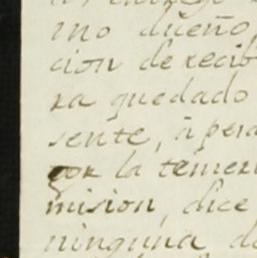 mo dueño,
cion de recib
ra quedado
sente, à pera
por la temeri
mision, dice
ninguna de